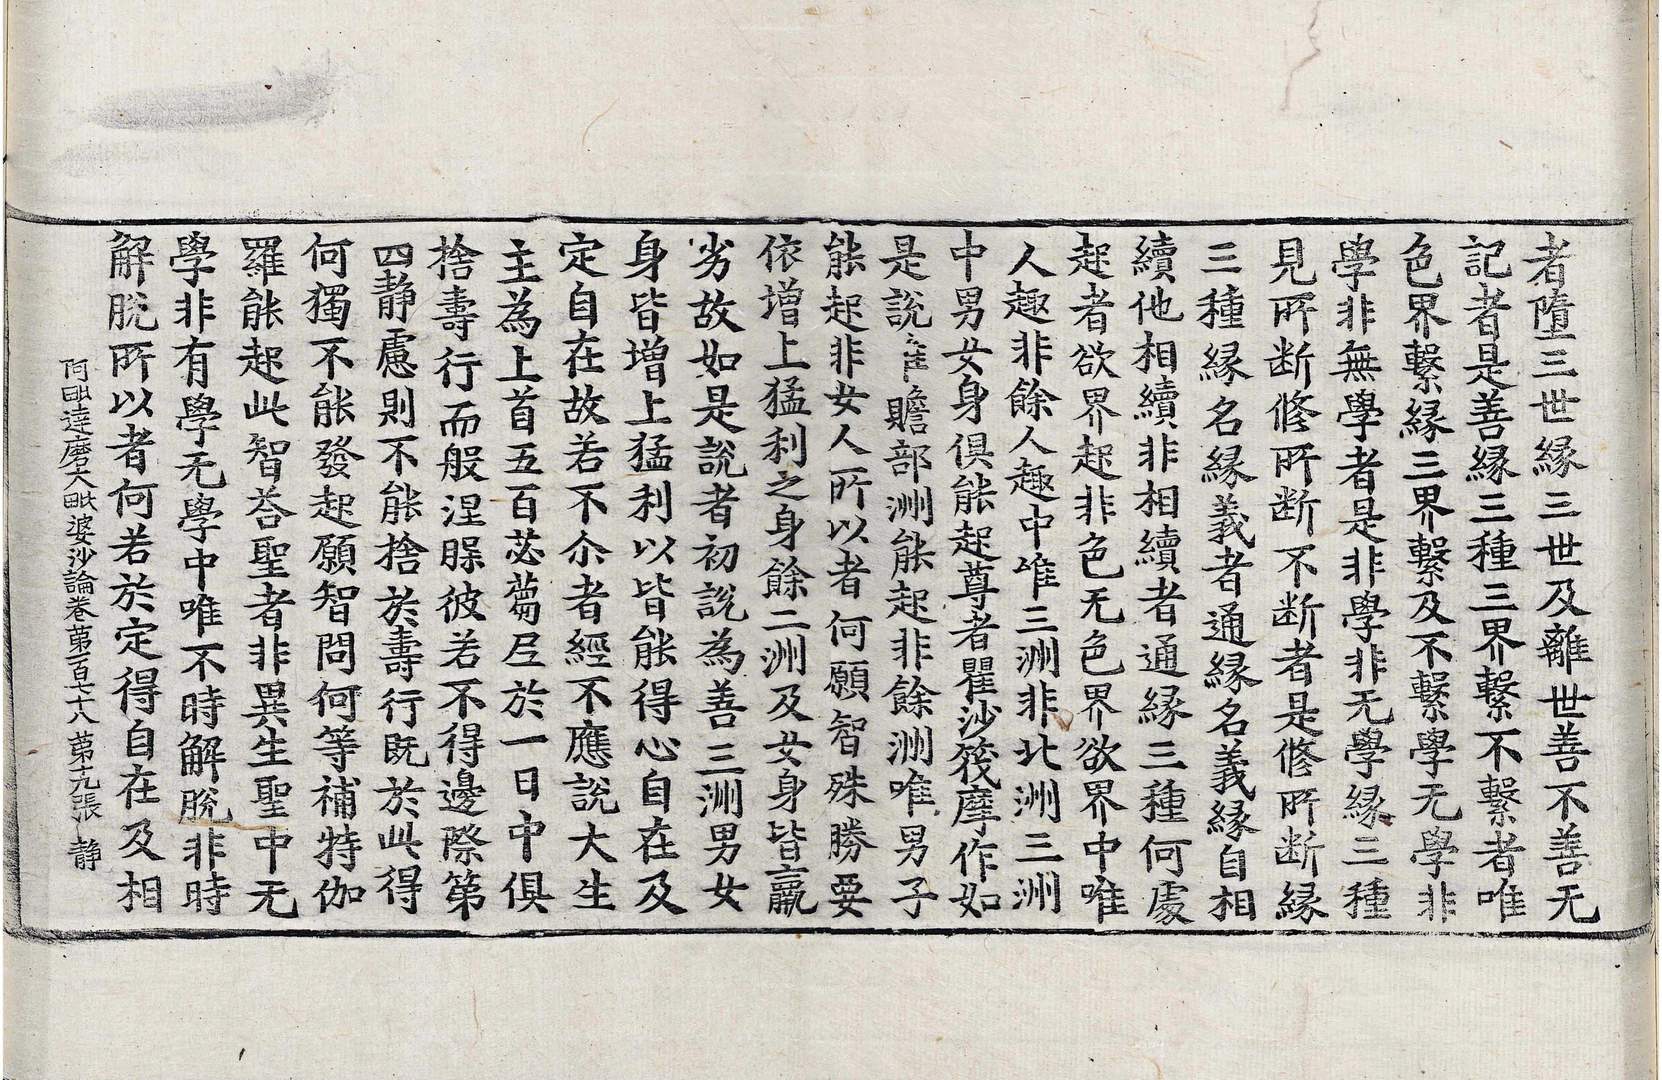 者墮三世緣三世及離世善不善无
記者是善緣三種三界繫不繫者唯
色界繫緣三界繫及不繫學无學非
學非無學者是非學非无學緣三種
見所断修所断不断者是修所断緣
三種緣名緣義者通緣名義緣自相
續他相續非相續者通緣三種何處
起者欲界起非色无色界欲界中唯
人趣非餘人趣中唯三洲非北洲三洲
中男女身俱能起尊者瞿沙筏摩作如
是說唯贍部洲能起非餘洲唯男子
能起非女人所以者何願智殊勝要
依增上猛利之身餘二洲及女身皆羸
劣故如是說者初說為善三洲男女
身皆增上猛利以皆能得心自在及
定自在故若不尒者經不應說大生
主為上首五百苾蒭𡰱於一日中俱
捨壽行而般涅槃彼若不得邊際第
四静慮則不能捨於壽行既於此得
何獨不能發起願智問何等補特伽
羅能起此智荅聖者非異生聖中无
學非有學无學中唯不時解脫非時
解脫所以者何若於定得自在及相
阿毗達磨大毗婆沙論卷第一百七十八 第十九張 静